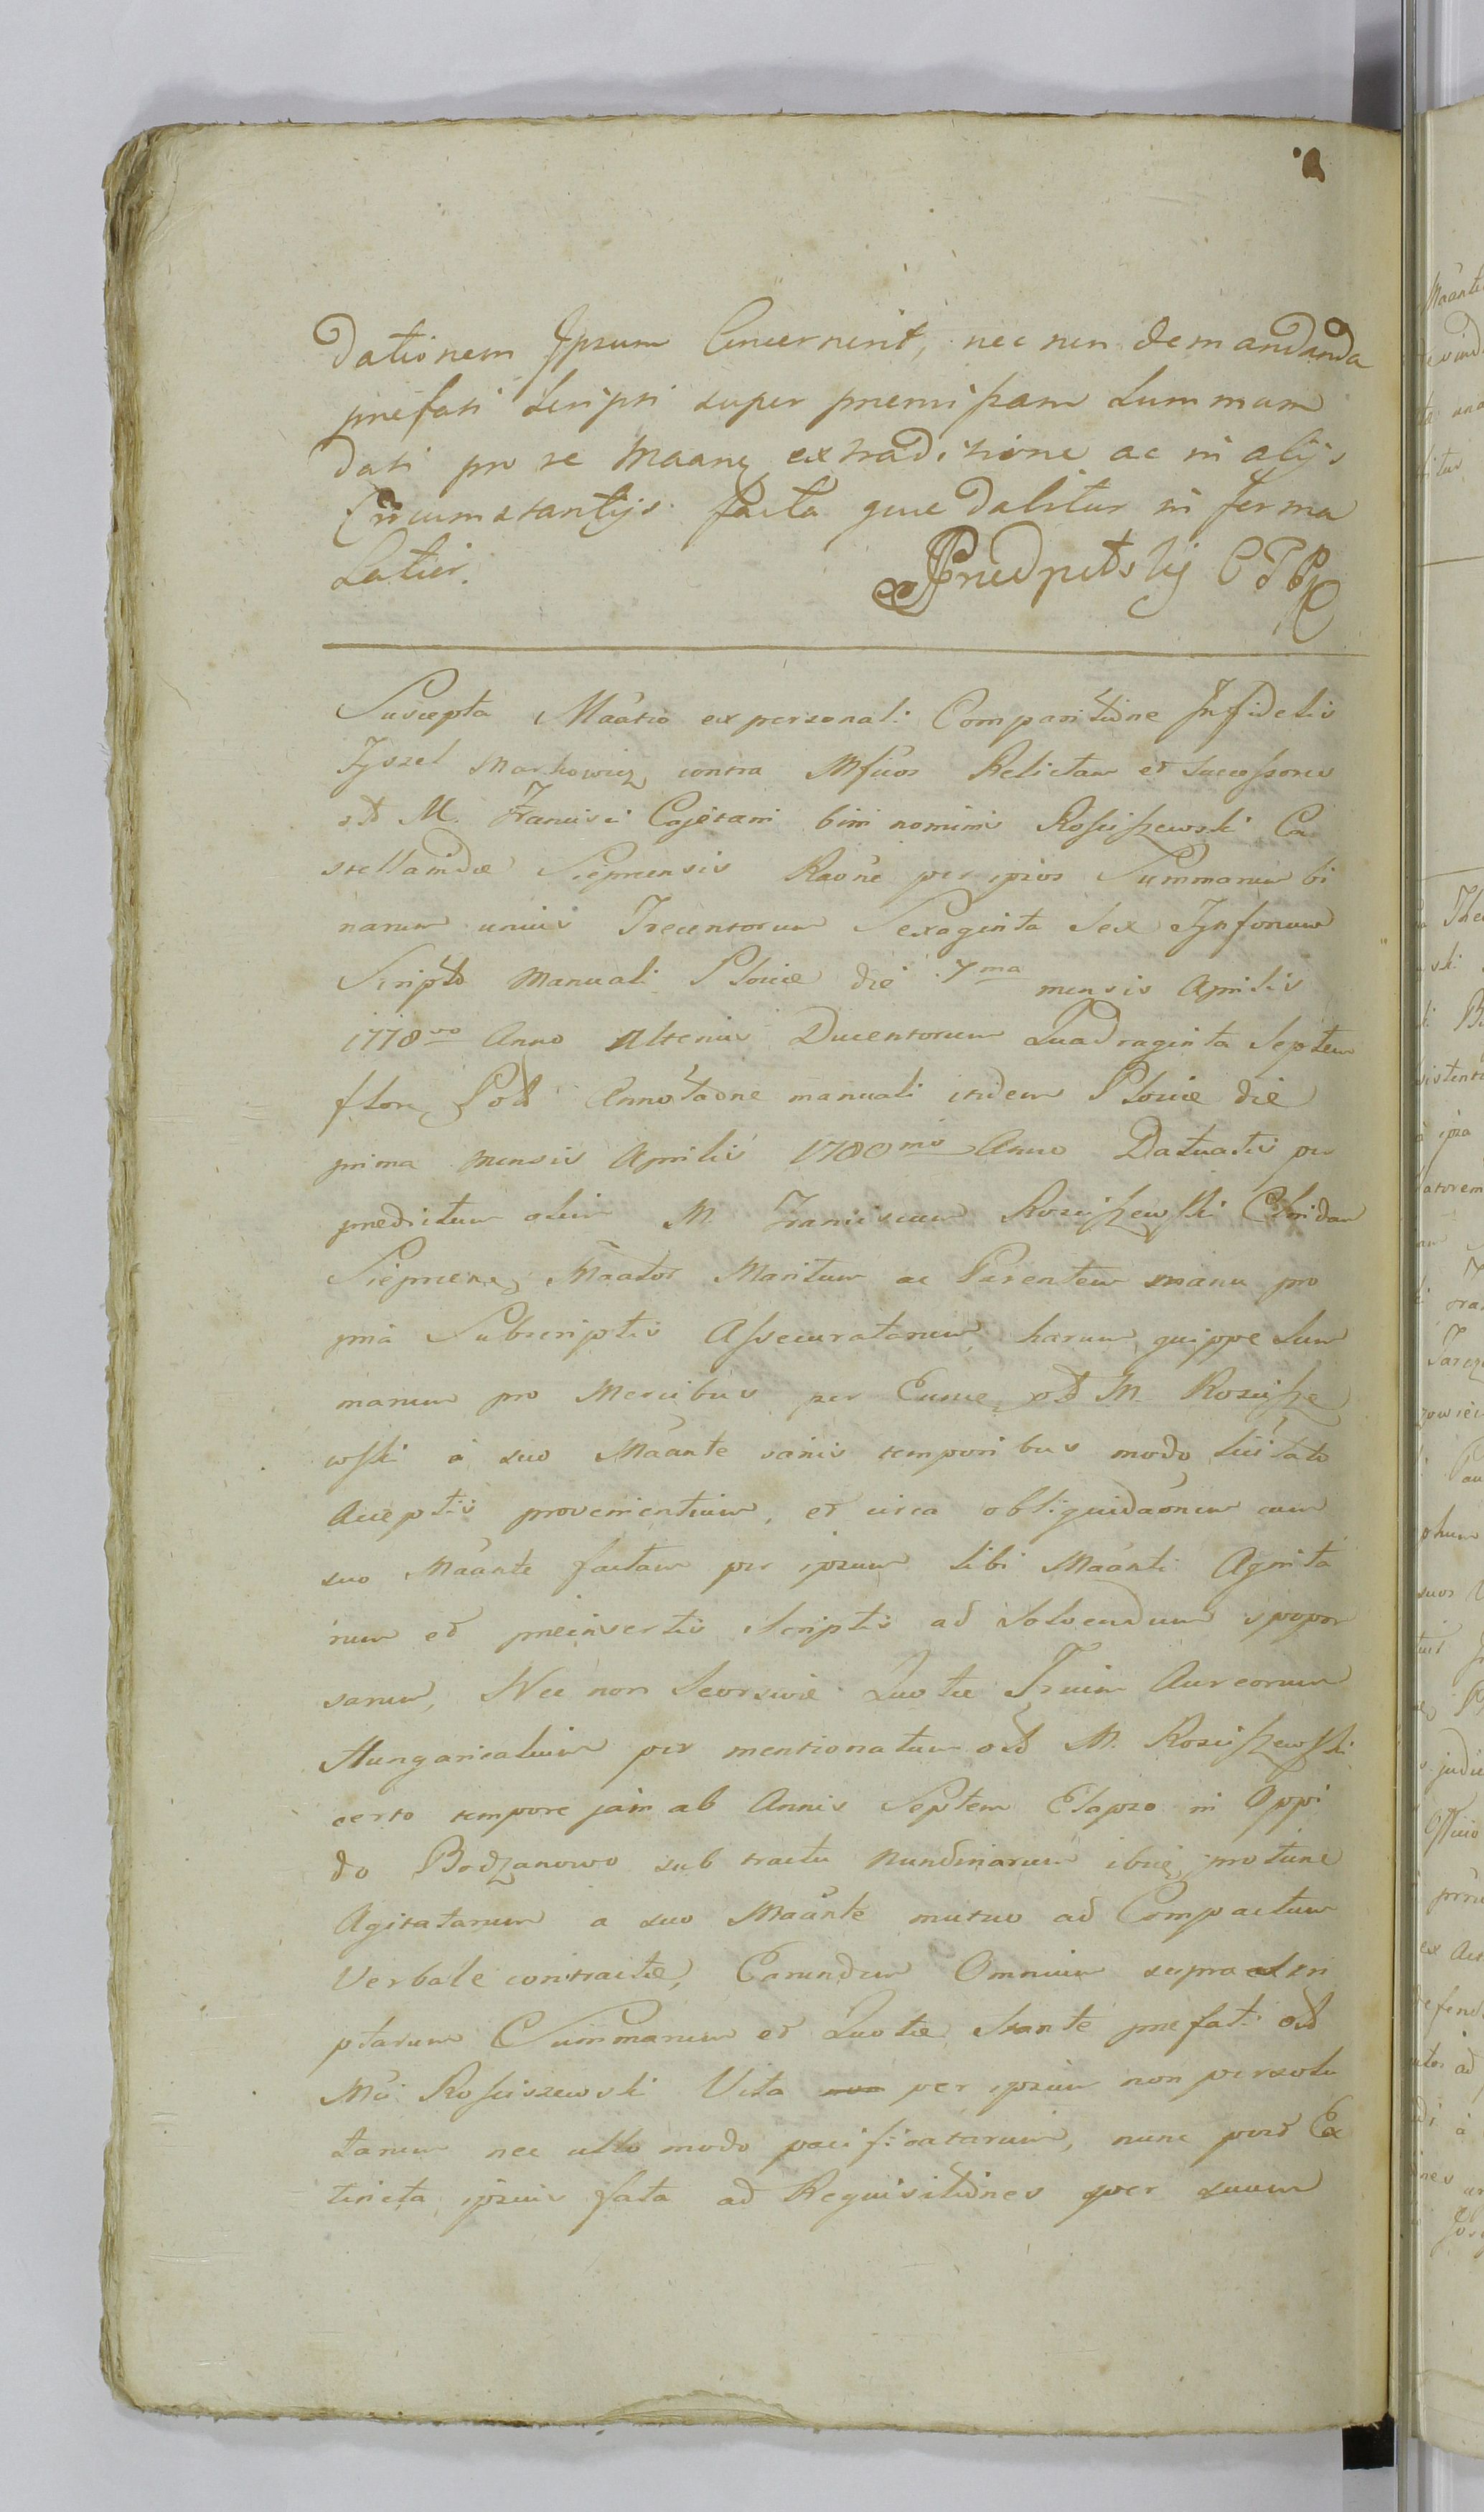 Dationem Ipsum Concernent, nec non demandanda
prefati Scripti super premissam Summam
dati pro se Maanq extraditione ac in alijs
Circumstantijs facta que dabitur in forma
Latior.
Suscepta Maatio ex personali Comparitione Infidelis
Jyszel Markowicz contra Mficos Relictam et Successores
M. Francisci Cajetani bini nominis Rościszewski Ca
stellanidæ Sieprcensis Raone per ipsos Summarum bi
narum unius Trecentorum Sexaginta Sex Tynfonum
Scripto Manuali Plociæ die 7ma mensis Aprilis
1778vo Anno Alterius Ducentorum Quadraginta Septem
flor Poll Annotaone manuali itidem Plociæ die
prima mensis Aprilis 1780mo Anno Datuatis per
predictum olim M. Franciscum Rościszewski Cstnidam
Sieprcenz Maator Maritum ac Parentem manu pro
pria Subscriptis Assecuratarum, harum quippe Sum
marum pro Mercibus per Eunde M. Rościsze
wski a suo Maante variis temporibus modo licitato
Acceptis provenientium, et circa obliquidaonem cum
suo Maante factam per ipsum sibi Maanti Agnita
rum et preinsertis Scriptis ad Solvendum spopon
sarum, Nec non Seorsivæ Quotæ Trium Aureorum
Hungaricalium per mentionatum M. Rościszewski
certo tempore jam ab Annis Septem Elapso in Oppi
do Bodzanowo sub tractu Nundinarum ibiq protunc
Agitatarum a suo Maante mutuo ad Compactum
Verbale contractæ, Earundem Omnium supra Scri
ptarum Summarum et Quotæ Stante prefati
Mci Rościszewski Vita per ipsum non persolu
tarum nec ullo modo pacificatarum, nunc post Ex
tincta ipsius fata ad Requisitiones per suum